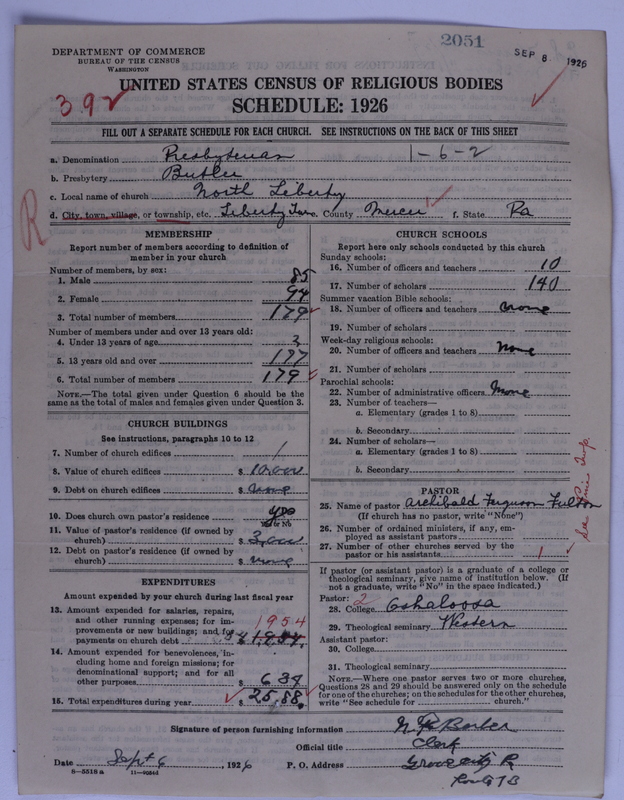 2051
SEP 8 1926
DEPARTMENT OF COMMERCE
BUREAU OF THE CENSUS
WASHINGTON
UNITED STATES CENSUS OF RELIGIOUS BODIES
392
SCHEDULE: 1926
FILL OUT A SEPARATE SCHEDULE FOR EACH CHURCH. SEE INSTRUCTIONS ON THE BACK OF THIS SHEET
a. Denomination Presbyterian 1-6-2
b. Presbytery Butler
c. Local name of church North Liberty
R
d. City, town, village, or township, etc. Liberty County Mercer f. State Pa
MEMBERSHIP
Report number of members according to definition of member in your church
Number of members, by sex:
1. Male 85
2. Female 94
3. Total number of members 179
Number of members under and over 13 years old:
4. Under 13 years of age 2
5. 13 years old and over 177
6. Total number of members 179
NOTE.—The total given under Question 6 should be
same as the total of males and females given under Question 3.
CHURCH BUILDINGS
See instructions, paragraphs 10 to 12
7. Number of church edifices 1
8. Value of church edifices $ 10,000
9. Debt on church edifices $ none
10. Does church own pastor's residence yes
Yes or No
11. Value of pastor's residence (if owned by
church) $ 3,000
12. Debt on pastor's residence (if owned by
church) $ none
EXPENDITURES
Amount expended by your church during last fiscal year
13. Amount expended for salaries, repairs,
and other running expenses; for im- 1954
provements or new buildings; and for
payments on church debt
14. Amount expended for benevolences, in-
cluding home and foreign missions; for
denominational support; and for all
other purposes $ 634
15. Total expenditures during year $ 2588.
CHURCH SCHOOLS
Report here only schools conducted by this church
Sunday schools:
16. Number of officers and teachers 10
17. Number of scholars 140
Summer vacation Bible schools:
18. Number of officers and teachers none
19. Number of scholars
Week-day religious schools:
20. Number of officers and teachers none
21. Number of scholars
Parochial schools:
22. Number of administrative officers none
23. Number of teachers—
a. Elementary (grades 1 to 8)
b. Secondary
24. Number of scholars—
a. Elementary (grades 1 to 8)
b. Secondary
PASTOR
25. Name of pastor Archibald Ferguson Fulton
(If church has no pastor, write "None")
26. Number of ordained ministers, if any, em-
ployed as assistant pastors
27. Number of other churches served by the
pastor or his assistants 1
See
If pastor (or assistant pastor) is a graduate of a college or
theological seminary, give name of institution below. (If
not a graduate, write "No" in the space indicated.)
Pastor: 2
28. College Oskaloosa
29. Theological seminary Western
Assistant pastor:
30. College
31. Theological seminary
NOTE.—Where one pastor serves two or more churches,
Questions 28 and 29 should be answered only on the schedule
for one of the churches; on the schedules for the other churches,
write "See schedule for church."
Signature of person furnishing information Barber
Official title Clerk
Date Sept 6, 1926 P. O. Address Grove City Pa
8-5518 a